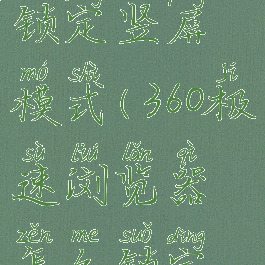 锁定竖屏
mó shì jí
模式(360极
sù liú lǎn qì
速浏览器
zěn me suǒ dìng
怎么锁定